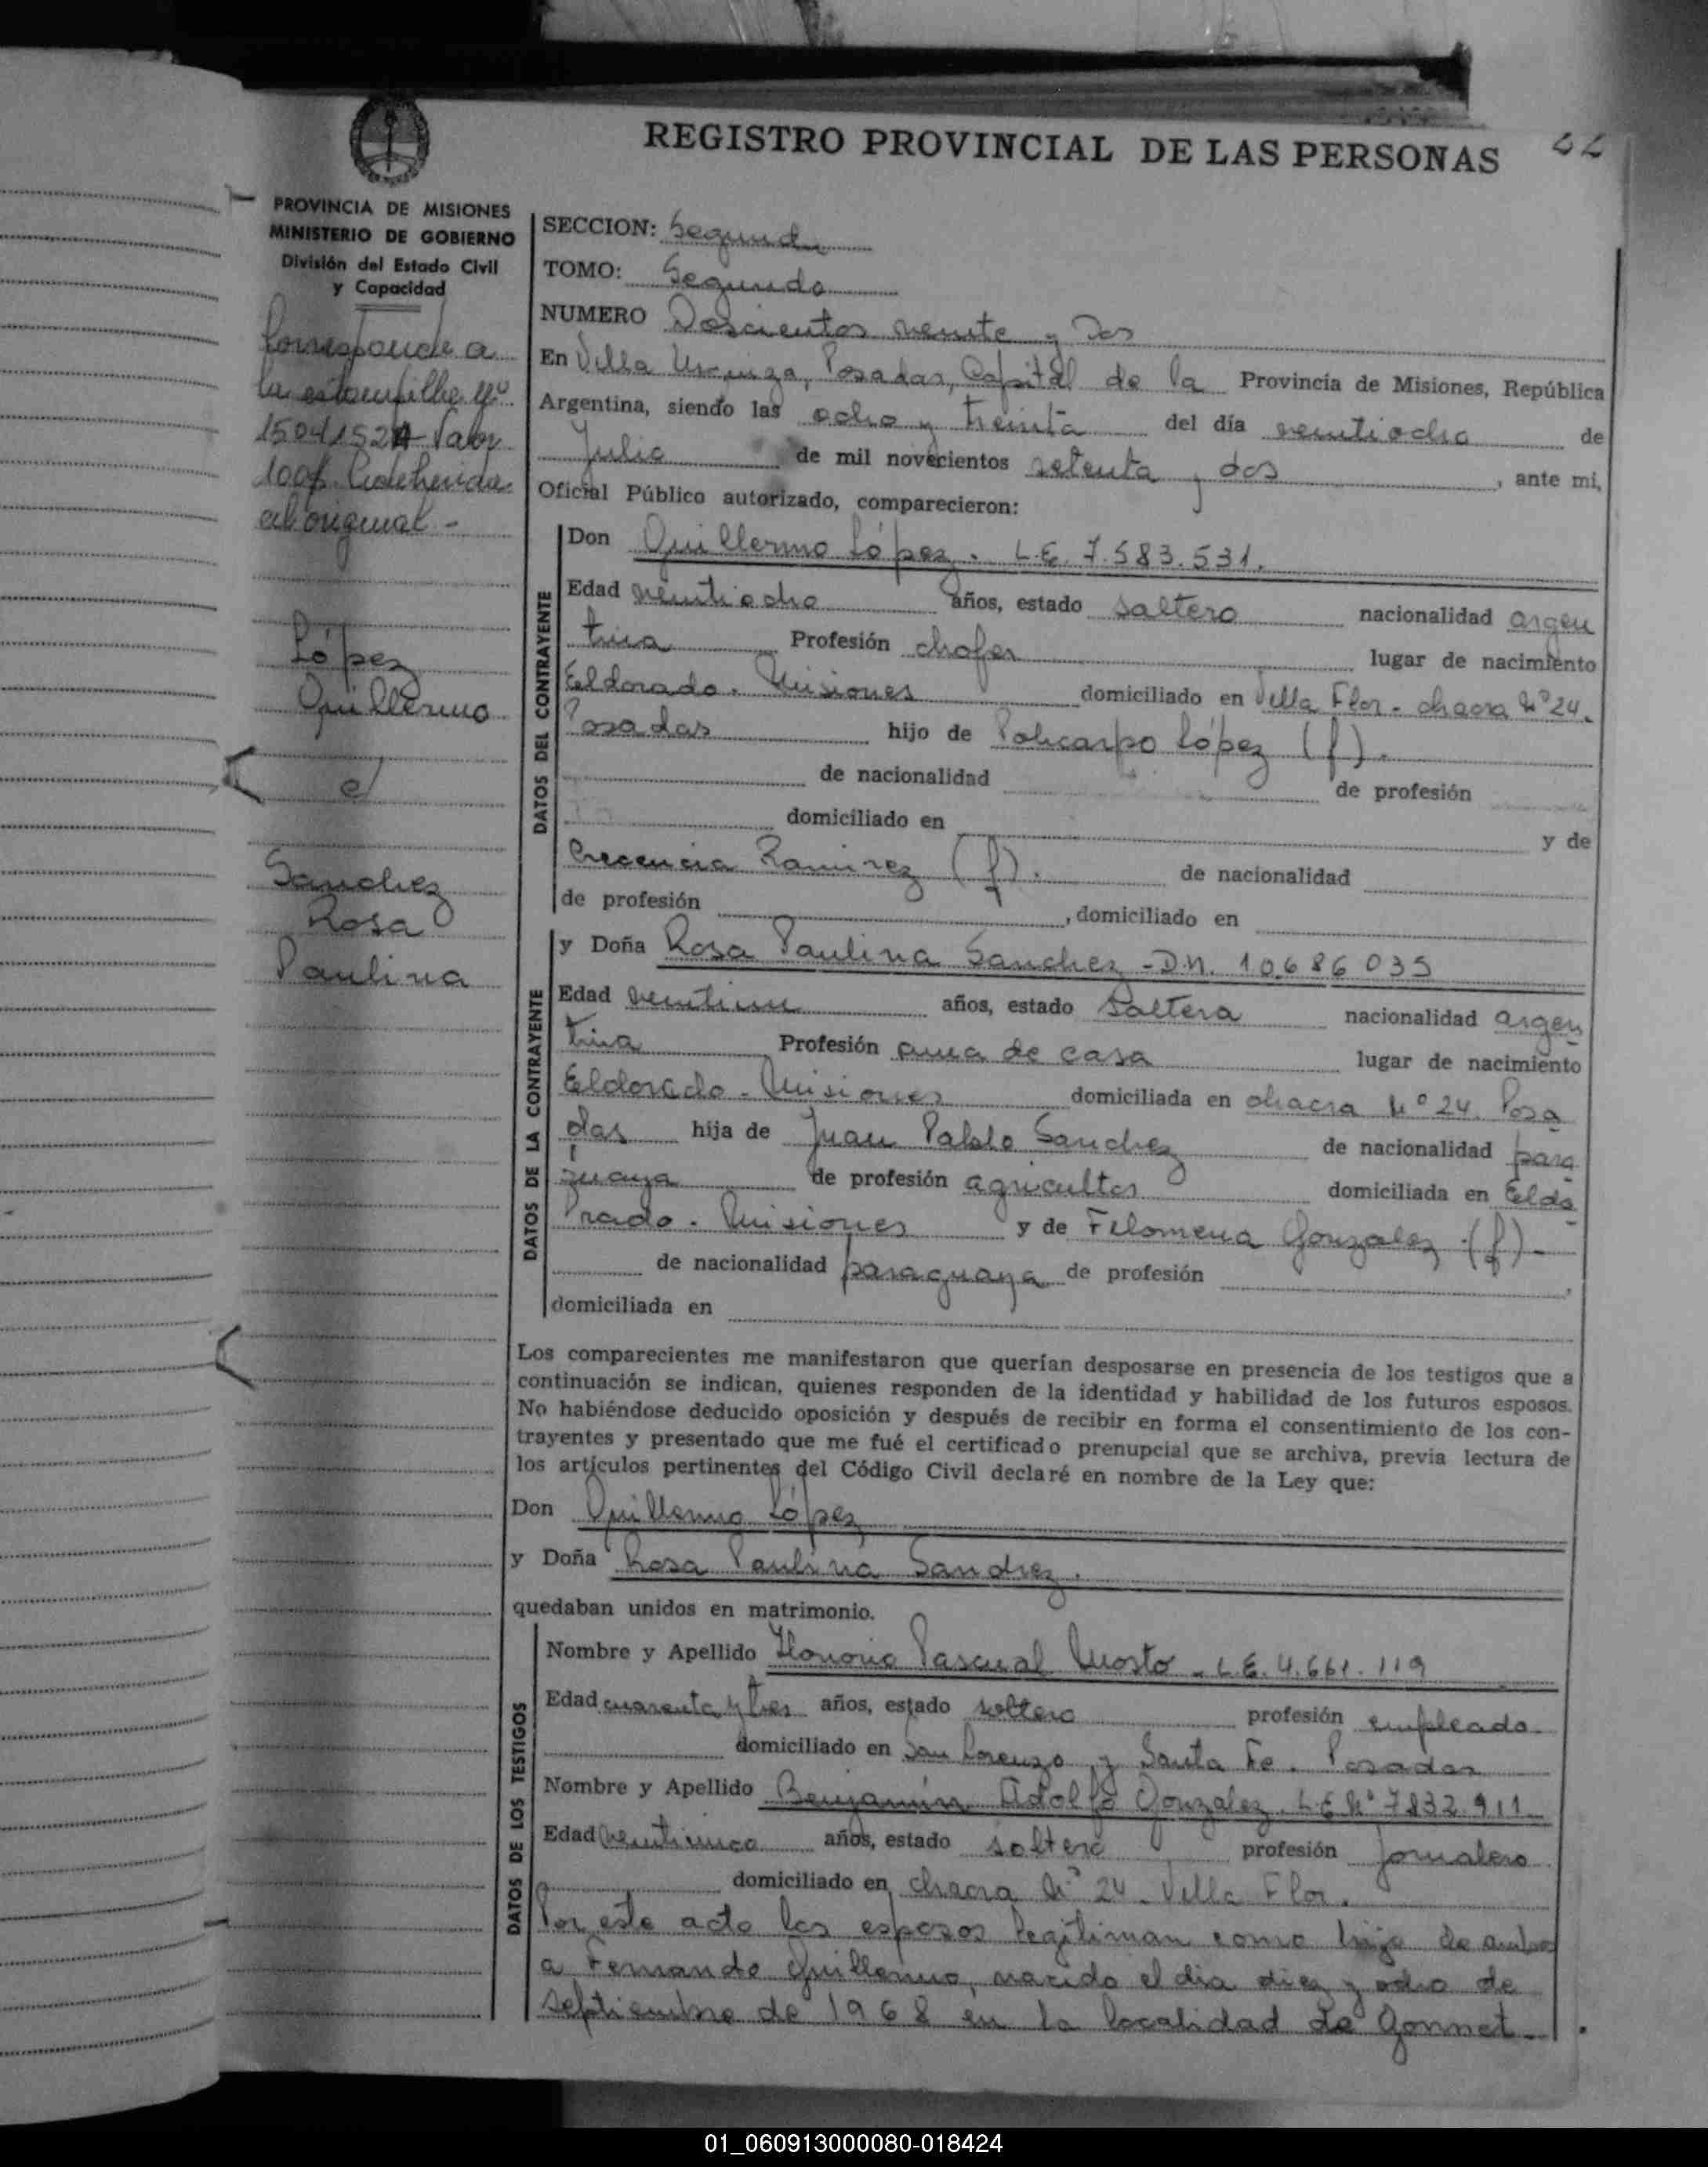 REGISTRO PROVINCIAL DE LAS PERSONAS
22
PROVINCIA DE MISIONES
MINISTERIO DE GOBIERNO
División del Estado Civil
y Capacidad
Corresponde a
la estampilla Nº
1504152 Valor
100$ adherida
al original -
López
Guillermo
e/
Sanchez
Rosa
Paulina
SECCION: Segunda
TOMO: Segundo
NUMERO Doscientos veinte y Dos
En Villa Urquiza, Posadas, Capital de la Provincia de Misiones, República
Argentina, siendo las ocho y treinta del día veintiocho de
Julio de mil novecientos setenta y dos, ante mi,
Oficial Público autorizado, comparecieron:
DATOS DEL CONTRAYENTE
Don Guillermo López. L.E. 7.583.531.
Edad veintiocho años, estado soltero nacionalidad argen
tina Profesión chofer lugar de nacimiento
Eldorado. Misiones domiciliado en Villa Flor - chacra Nº 24.
Posadas hijo de Policarpo López (f).
de nacionalidad de profesión
domiciliado en y de
Crecencia Ramirez (f). de nacionalidad
de profesión , domiciliado en
DATOS DE LA CONTRAYENTE
y Doña Rosa Paulina Sanchez - D.N. 10.686035
Edad veintiun años, estado Soltera nacionalidad argen
tina Profesión ama de casa lugar de nacimiento
Eldorado - Misiones domiciliada en chacra Nº 24. Posa
das hija de Juan Pablo Sanchez de nacionalidad para
guaya de profesión agricultor domiciliada en Eldo
rado. Misiones y de Filomena Gonzalez (f) -
de nacionalidad paraguaya de profesión
domiciliada en
Los comparecientes me manifestaron que querían desposarse en presencia de los testigos que a
continuación se indican, quienes responden de la identidad y habilidad de los futuros esposos.
No habiéndose deducido oposición y después de recibir en forma el consentimiento de los con-
trayentes y presentado que me fué el certificado prenupcial que se archiva, previa lectura de
los artículos pertinentes del Código Civil declaré en nombre de la Ley que:
Don Guillermo López
y Doña Rosa Paulina Sanchez.
quedaban unidos en matrimonio.
DATOS DE LOS TESTIGOS
Nombre y Apellido Honorio Pascual Mosto - L.E. 4.661.119
Edad cuarenta y tres años, estado soltero profesión empleado
domiciliado en San Lorenzo y Santa Fe. Posadas
Nombre y Apellido Benjamín Adolfo Gonzalez. L.E Nº 7832.911
Edad veinticinco años, estado soltero profesión jornalero
domiciliado en chacra Nº 24 - Villa Flor.
Por este acto los esposos legitiman como hijo de ambos
a Fernando Guillermo, nacido el dia diez y ocho de
septiembre de 1968 en la localidad de Gonnet
01_060913000080-018424